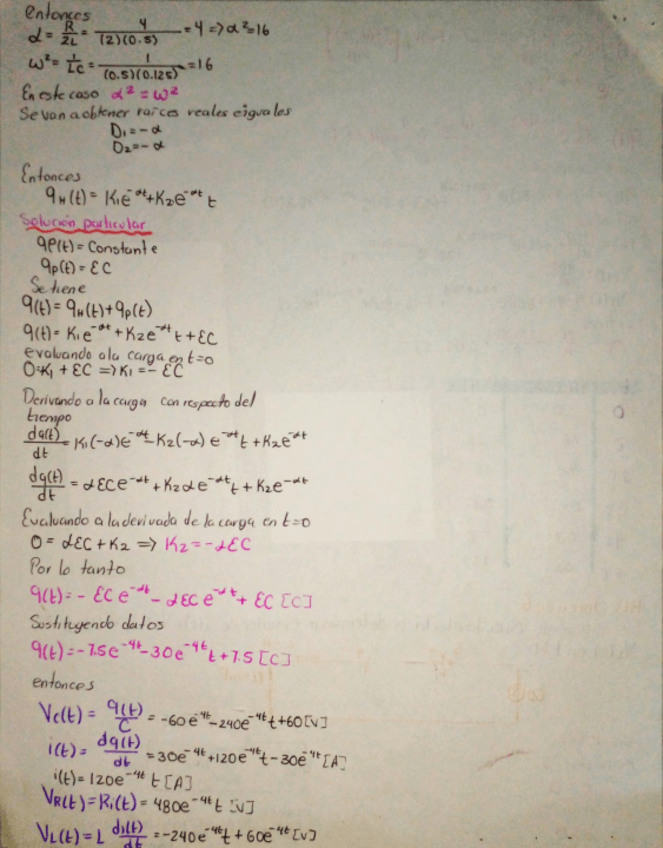 entonces
α = R/2L = 4/(2)(0.5) = 4 => α²=16
ω² = 1/LC = 1/(0.5)(0.125) = 16
En este caso α² = ω²
Se van a obtener raíces reales e iguales
D₁ = -α
D₂ = -α
Entonces
q_H(t) = K₁e^-αt + K₂e^-αt t
Solución particular
qp(t) = Constante
qp(t) = EC
Se tiene
q(t) = q_H(t) + q_p(t)
q(t) = K₁e^-αt + K₂e^-αt t + EC
evaluando a la carga en t=0
0=K₁ + EC => K₁ = - EC
Derivando a la carga con respecto del
tiempo
dq(t)/dt = K₁(-α)e^-αt - K₂(-α) e^-αt t + K₂e^-αt
dq(t)/dt = αECe^-αt + K₂αe^-αt t + K₂e^-αt
Evaluando a la derivada de la carga en t=0
0 = αEC + K₂ => K₂ = -αEC
Por lo tanto
q(t) = - EC e^-αt - αEC e^-αt + EC [C]
Sustituyendo datos
q(t) = -7.5e^-4t - 30e^-4t t + 7.5 [C]
entonces
Vc(t) = q(t)/C = -60e^-4t - 240e^-4t t + 60 [V]
i(t) = dq(t)/dt = 30e^-4t + 120e^-4t t - 30e^-4t [A]
i(t) = 120e^-4t t [A]
V_R(t) = Ri(t) = 480e^-4t t [V]
V_L(t) = L di(t)/dt = -240e^-4t t + 60e^-4t [V]